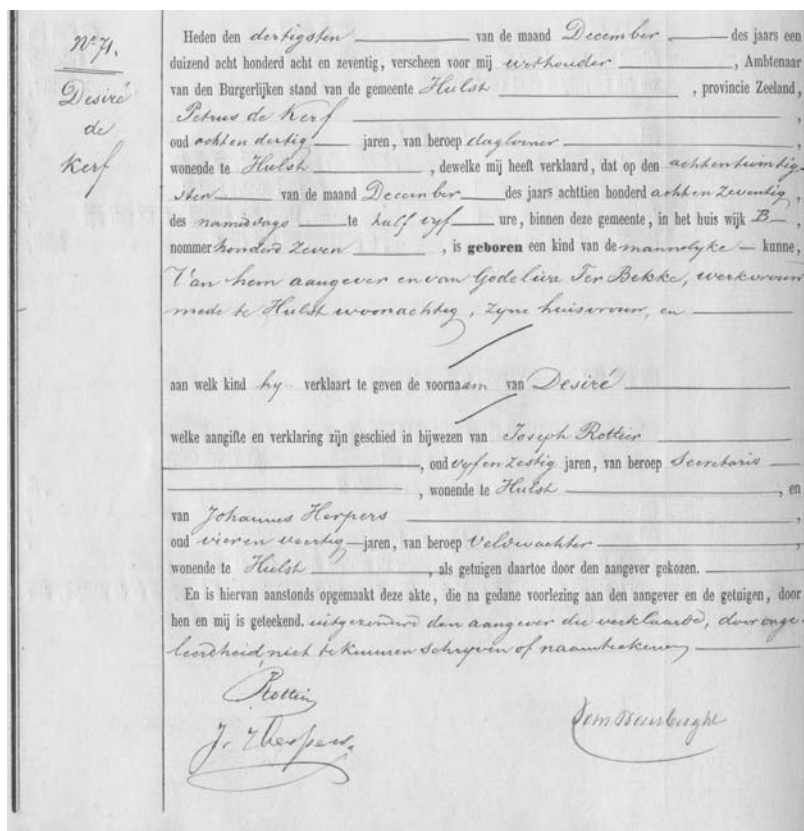 Nº 71.
Desiré
de
Kerf
Heden den dertigsten van de maand December des jaars een
duizend acht honderd acht en zeventig, verscheen voor mij wethouder , Ambtenaar
van den Burgerlijken stand van de gemeente Hulst , provincie Zeeland,
Petrus de Kerf ,
oud acht en dertig jaren, van beroep daglooner ,
wonende te Hulst , dewelke mij heeft verklaard, dat op den acht en twintig
sten van de maand December des jaars achttien honderd acht en zeventig,
des namiddags te half vyf ure, binnen deze gemeente, in het huis wijk B ,
nommer honderd zeven , is geboren een kind van de mannelyke kunne,
Van hem aangever en van Godeliva Ter Bekke, werkvrouw
mede te Hulst woonachtig, zyne huisvrouw, en
aan welk kind hy verklaart te geven de voornaam van Desiré
welke aangifte en verklaring zijn geschied in bijwezen van Joseph Rottier
, oud vyf en zestig jaren, van beroep Secretaris
, wonende te Hulst , en
van Johannes Herpers ,
oud vier en veertig jaren, van beroep Veldwachter ,
wonende te Hulst , als getuigen daartoe door den aangever gekozen.
En is hiervan aanstonds opgemaakt deze akte, die na gedane voorlezing aan den aangever en de getuigen, door
hen en mij is geteekend. uitgezonderd den aangever die verklaarde, door onge
leerdheid niet te kunnen schryven of naamteekenen
Rottier
J. Herpers